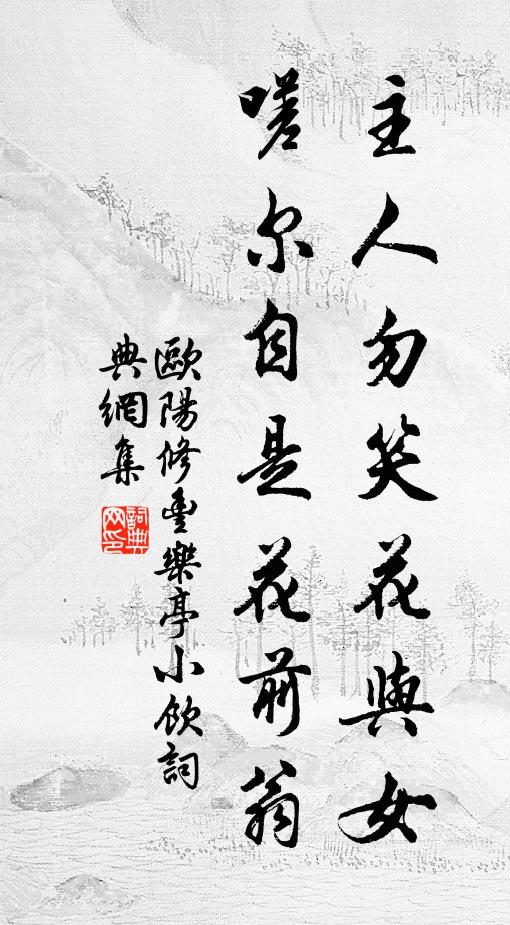 主人勿笑花與女
嗟尔自是花前翁
歐陽修豐樂亭小飲詞
典網集
詞典
网印